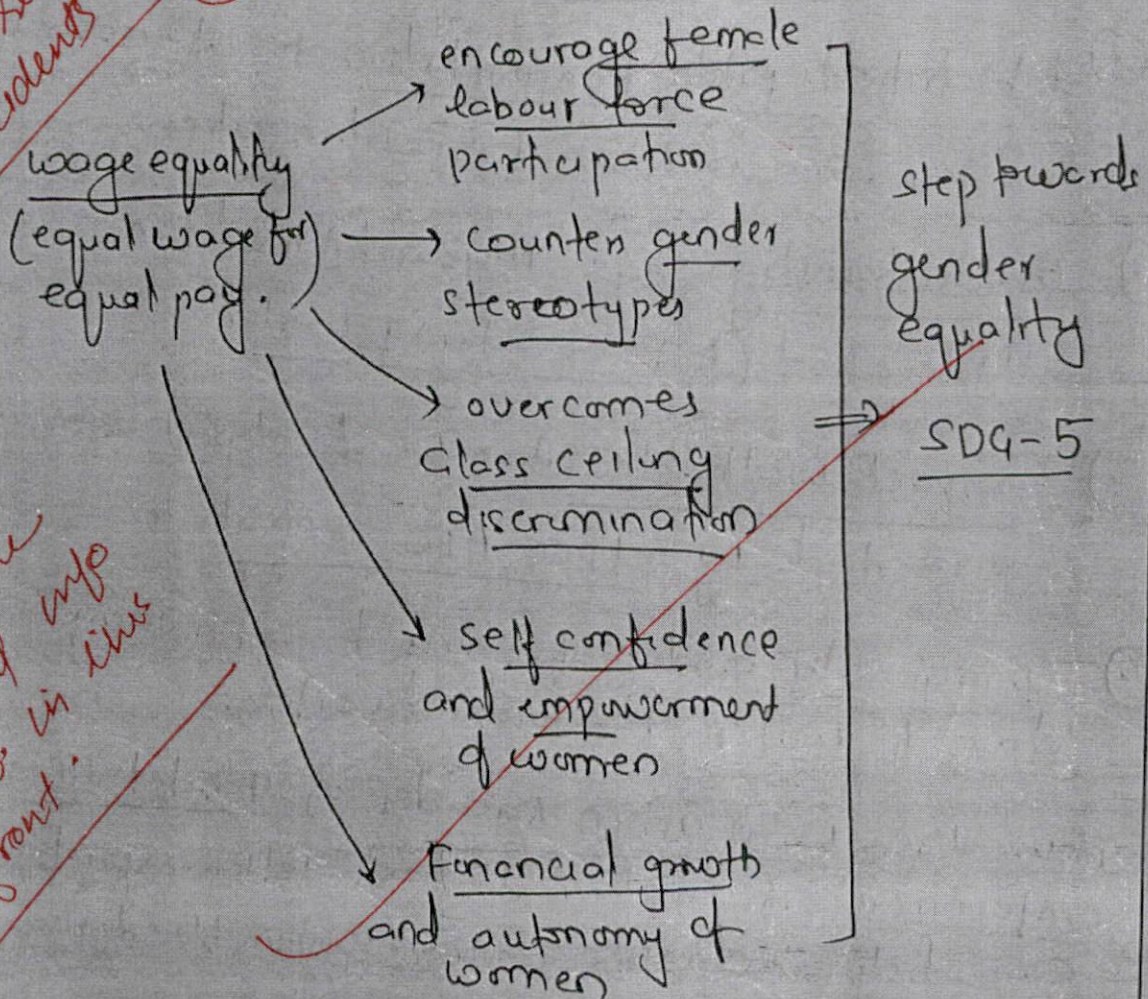 idents
wage equality
(equal wage for)
equal pay.
encourage female
labour force
participation
counters gender
stereotypes
overcomes
Glass ceiling
discrimination
self confidence
and empowerment
of women
Financial growth
and autonomy of
women
step towards
gender
equality
SDG-5
info
in this
front.